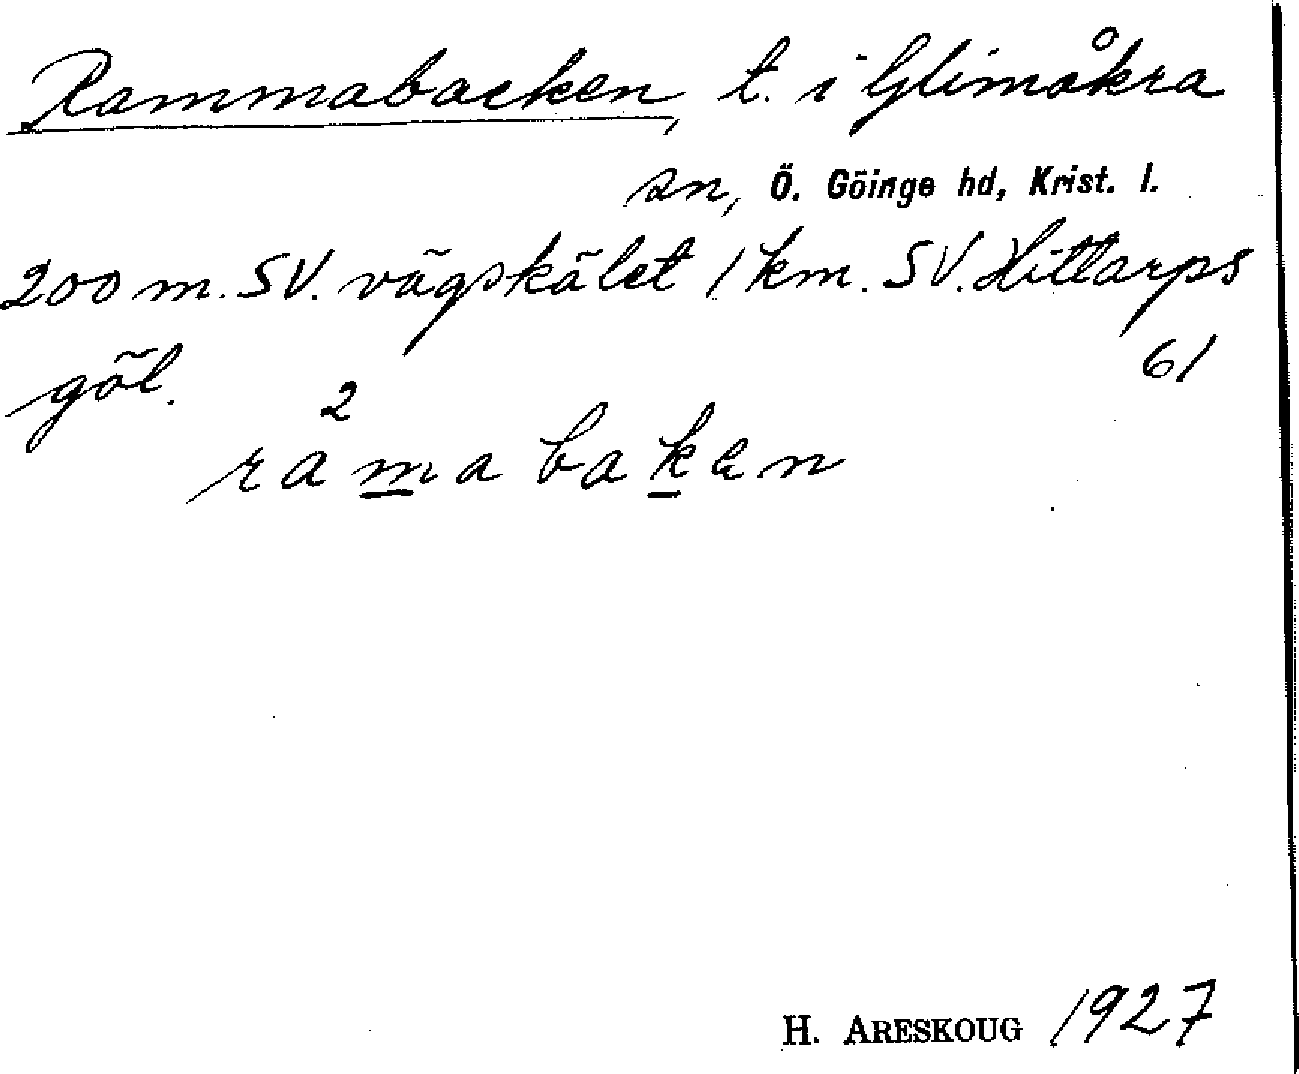 Rammabacken, t. i Glimåkra
sn, Ö. Göinge hd, Krist. l.
200 m. SV. vägskälet 1 km. SV. Hittarps
göl. 61
2
ramabaken
H. ARESKOUG 1927